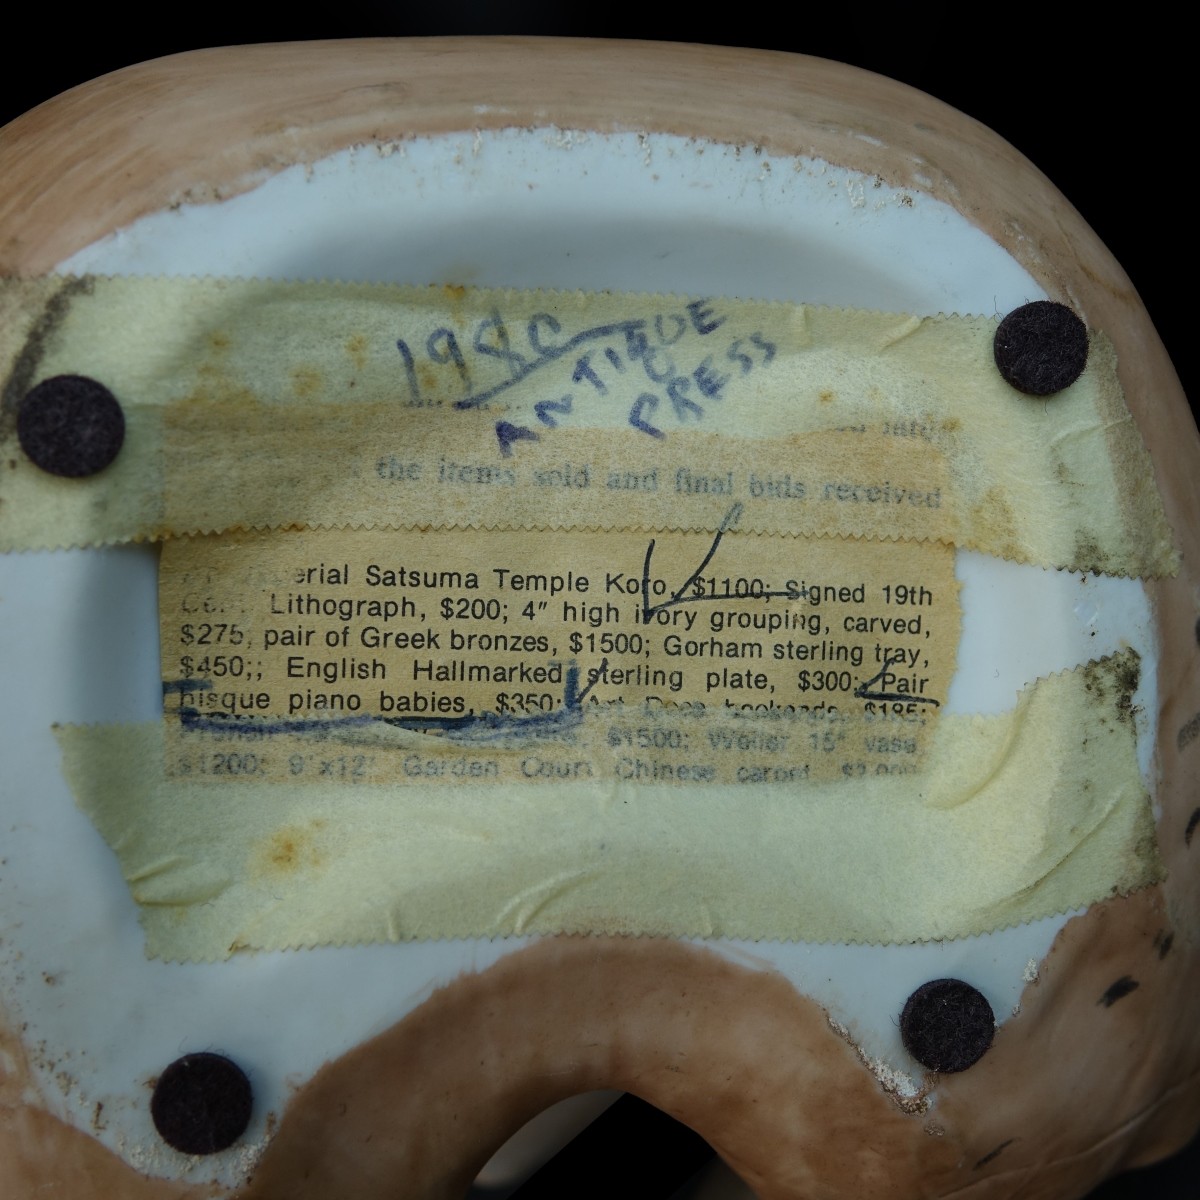 1980
ANTIQUE
PRESS
the items sold and final bids received
erial Satsuma Temple Koro, $1100; Signed 19th
Lithograph, $200; 4" high ivory grouping, carved,
$275, pair of Greek bronzes, $1500; Gorham sterling tray,
$450;; English Hallmarked sterling plate, $300; Pair
bisque piano babies, $350; Art Deco bookends, $185;
$1500; Weller 15" vase
$1200; 9'x12' Garden Court Chinese carpet, $2,000